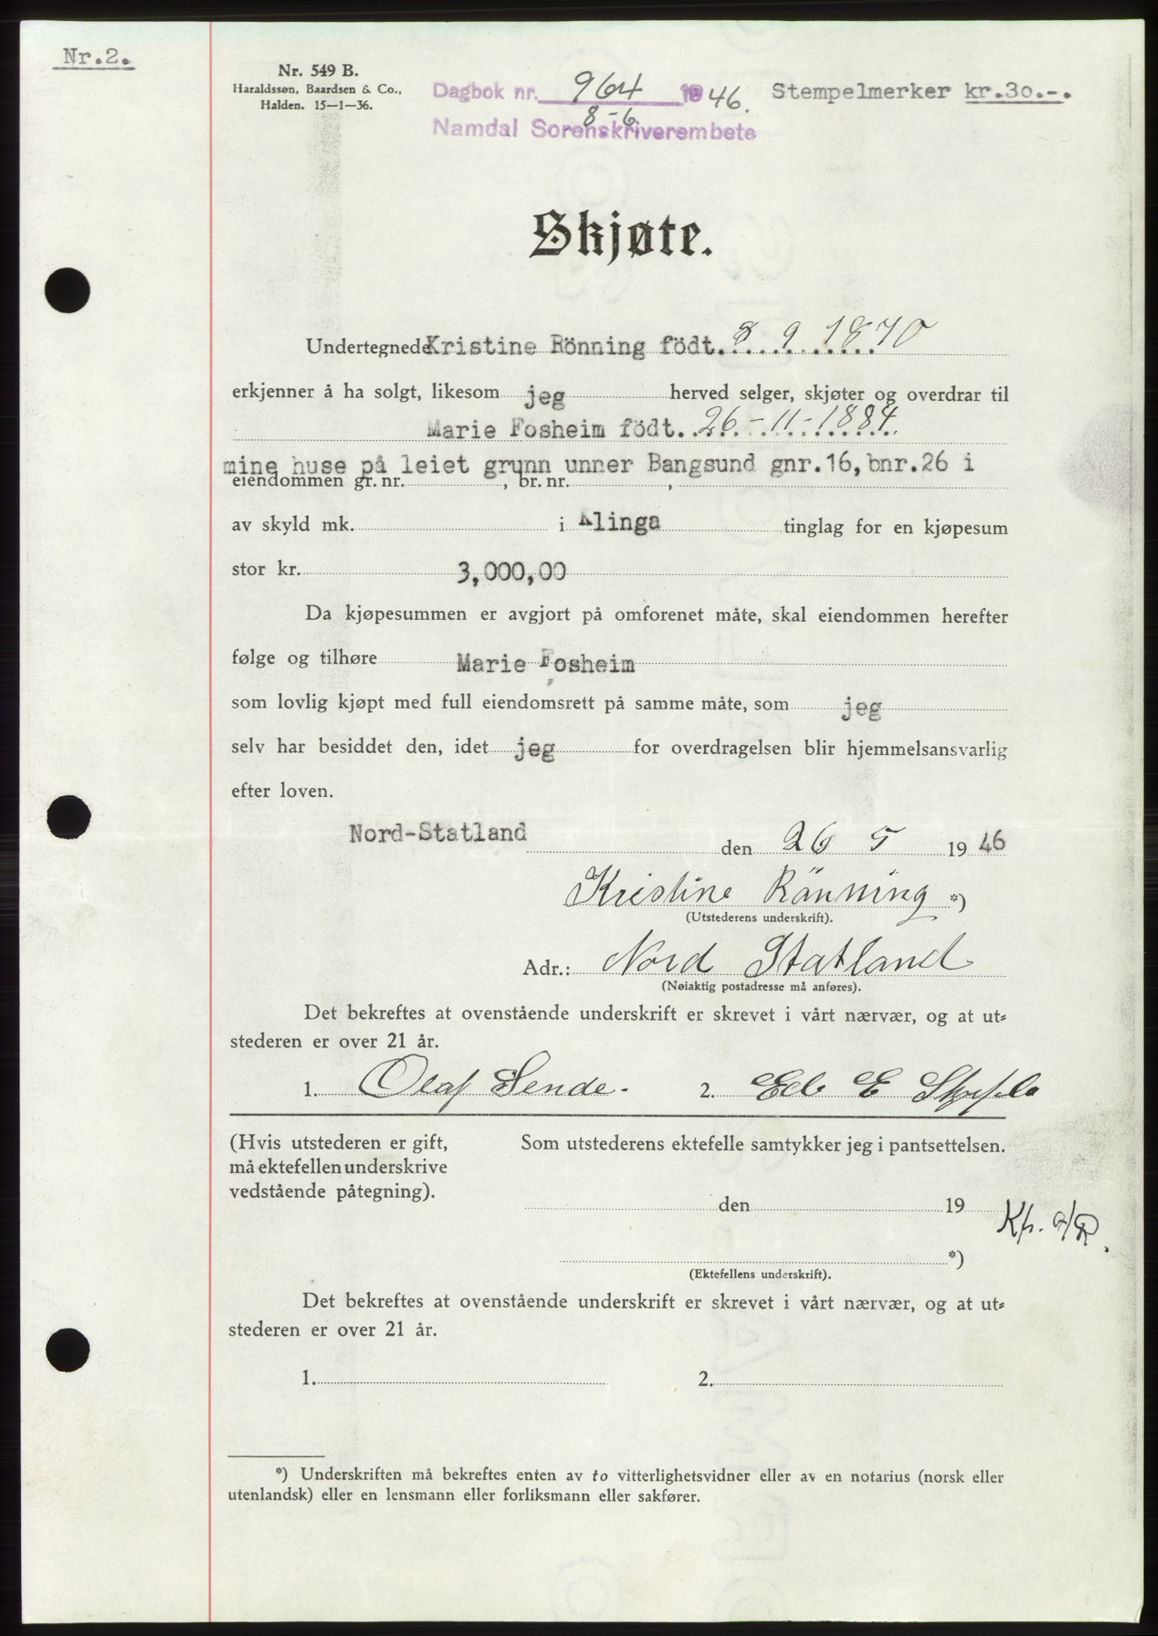 Nr.2.
Nr. 549 B.
Haraldssøn, Baardsen & Co.,
Halden. 15-1-36.
Dagbok nr. 964 1946.
8-6
Namdal Sorenskriverembete
Stempelmerker kr.30.-.
Skjøte.
Undertegnede Kristine Rönning födt. 8 9 1870
erkjenner å ha solgt, likesom jeg herved selger, skjøter og overdrar til
Marie Fosheim födt. 26-11-1884.
mine huse på leiet grunn unner Bangsund gnr.16, bnr.26 i
eiendommen gr. nr. , br. nr. ,
av skyld mk. i Klinga tinglag for en kjøpesum
stor kr. 3,000,00
Da kjøpesummen er avgjort på omforenet måte, skal eiendommen herefter
følge og tilhøre Marie Fosheim
som lovlig kjøpt med full eiendomsrett på samme måte, som jeg
selv har besiddet den, idet jeg for overdragelsen blir hjemmelsansvarlig
efter loven.
Nord-Statland den 26 5 1946
Kristine Rönning *)
(Utstederens underskrift).
Adr.: Nord Statland
(Nøiaktig postadresse må anføres).
Det bekreftes at ovenstående underskrift er skrevet i vårt nærvær, og at ut-
stederen er over 21 år.
1. Olaf Sende. 2. E
(Hvis utstederen er gift,
må ektefellen underskrive
vedstående påtegning).
Som utstederens ektefelle samtykker jeg i pantsettelsen.
den 19
Kp.
*)
(Ektefellens underskrift).
Det bekreftes at ovenstående underskrift er skrevet i vårt nærvær, og at ut-
stederen er over 21 år.
1. 2.
*) Underskriften må bekreftes enten av to vitterlighetsvidner eller av en notarius (norsk eller
utenlandsk) eller en lensmann eller forliksmann eller sakfører.